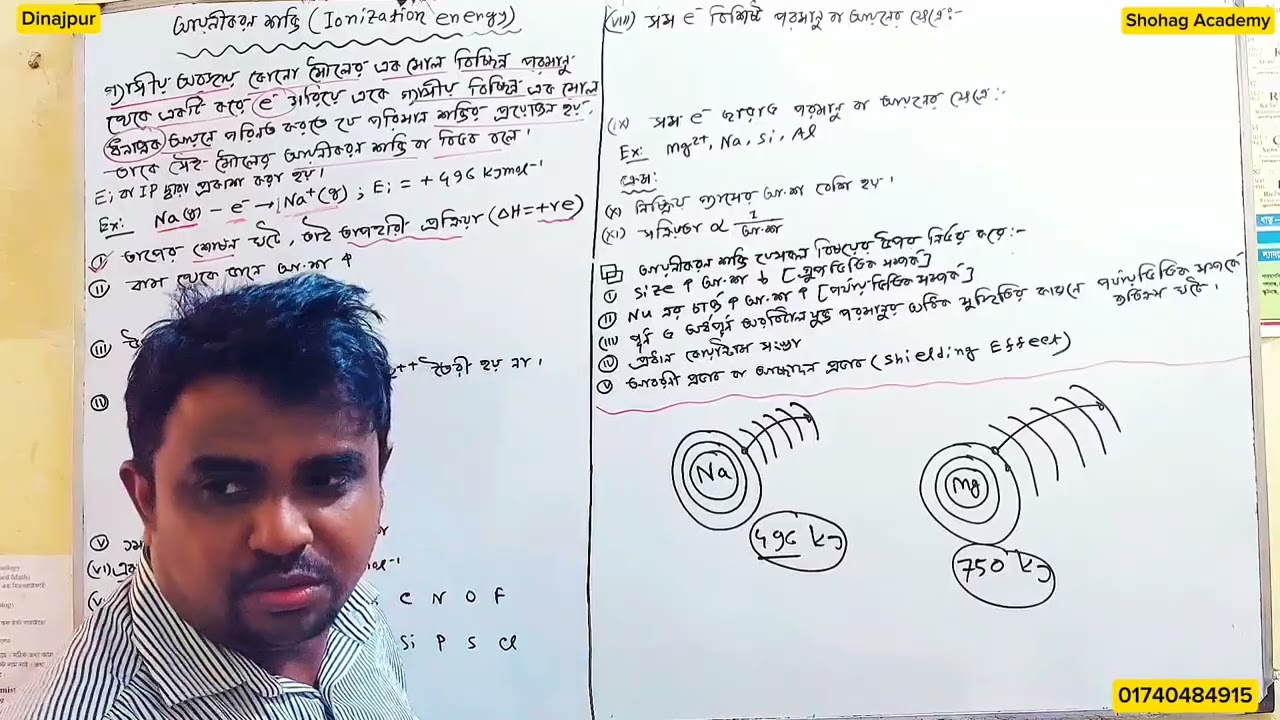 Dinajpur
Shohag Academy
আয়নীকরণ শক্তি (Ionization energy)
গ্যাসীয় অবস্থায় কোনো মৌলের এক মোল বিচ্ছিন্ন পরমাণু
থেকে একটি করে e⁻ সরিয়ে একে গ্যাসীয় বিচ্ছিন্ন এক মোল
ধনাত্মক আয়নে পরিনত করতে যে পরিমান শক্তির প্রয়োজন হয়,
তাকে সেই মৌলের আয়নীকরণ শক্তি বা বিভব বলে।
Eᵢ বা IP দ্বারা প্রকাশ করা হয়।
Ex: Na(g) - e⁻ → Na⁺(g) ; Eᵢ = +496 kJmol⁻¹
i তাপের শোষন ঘটে, তাই তাপহারী প্রক্রিয়া (ΔH=+ve)
ii বাম থেকে ডানে আ.শ ↑
iii
++ তৈরী হয় না।
iv
v
(vi)
C N O F
Si P S Cl
(viii) সম e⁻ বিশিষ্ট পরমানু বা আয়নের ক্ষেত্রে:-
(ix) সম e⁻ ছাড়াও পরমানু বা আয়নের ক্ষেত্রে:-
Ex: Mg²⁺, Na, Si, Al
ক্রম:
(x) নিষ্ক্রিয় গ্যাসের আ.শ বেশি হয়।
(xi) সক্রিয়তা ∝ 1/আ.শ
আয়নীকরণ শক্তি যেসকল বিষয়ের উপর নির্ভর করে:-
i Size ↑ আ.শ ↓ [গ্রুপ ভিত্তিক সম্পর্ক]
ii Nu এর চার্জ ↑ আ.শ ↑ [পর্যায় ভিত্তিক সম্পর্ক]
iii পূর্ণ ও অর্ধপূর্ণ অরবিটাল যুক্ত পরমানুর অধিক সুস্থিতির কারনে পর্যায় ভিত্তিক সম্পর্কে
ব্যতিক্রম ঘটে।
iv প্রধান কোয়ান্টাম সংখ্যা
v আবরনী প্রভাব বা আচ্ছাদন প্রভাব (Shielding Effect)
Na
Mg
496 kJ
750 kJ
01740484915